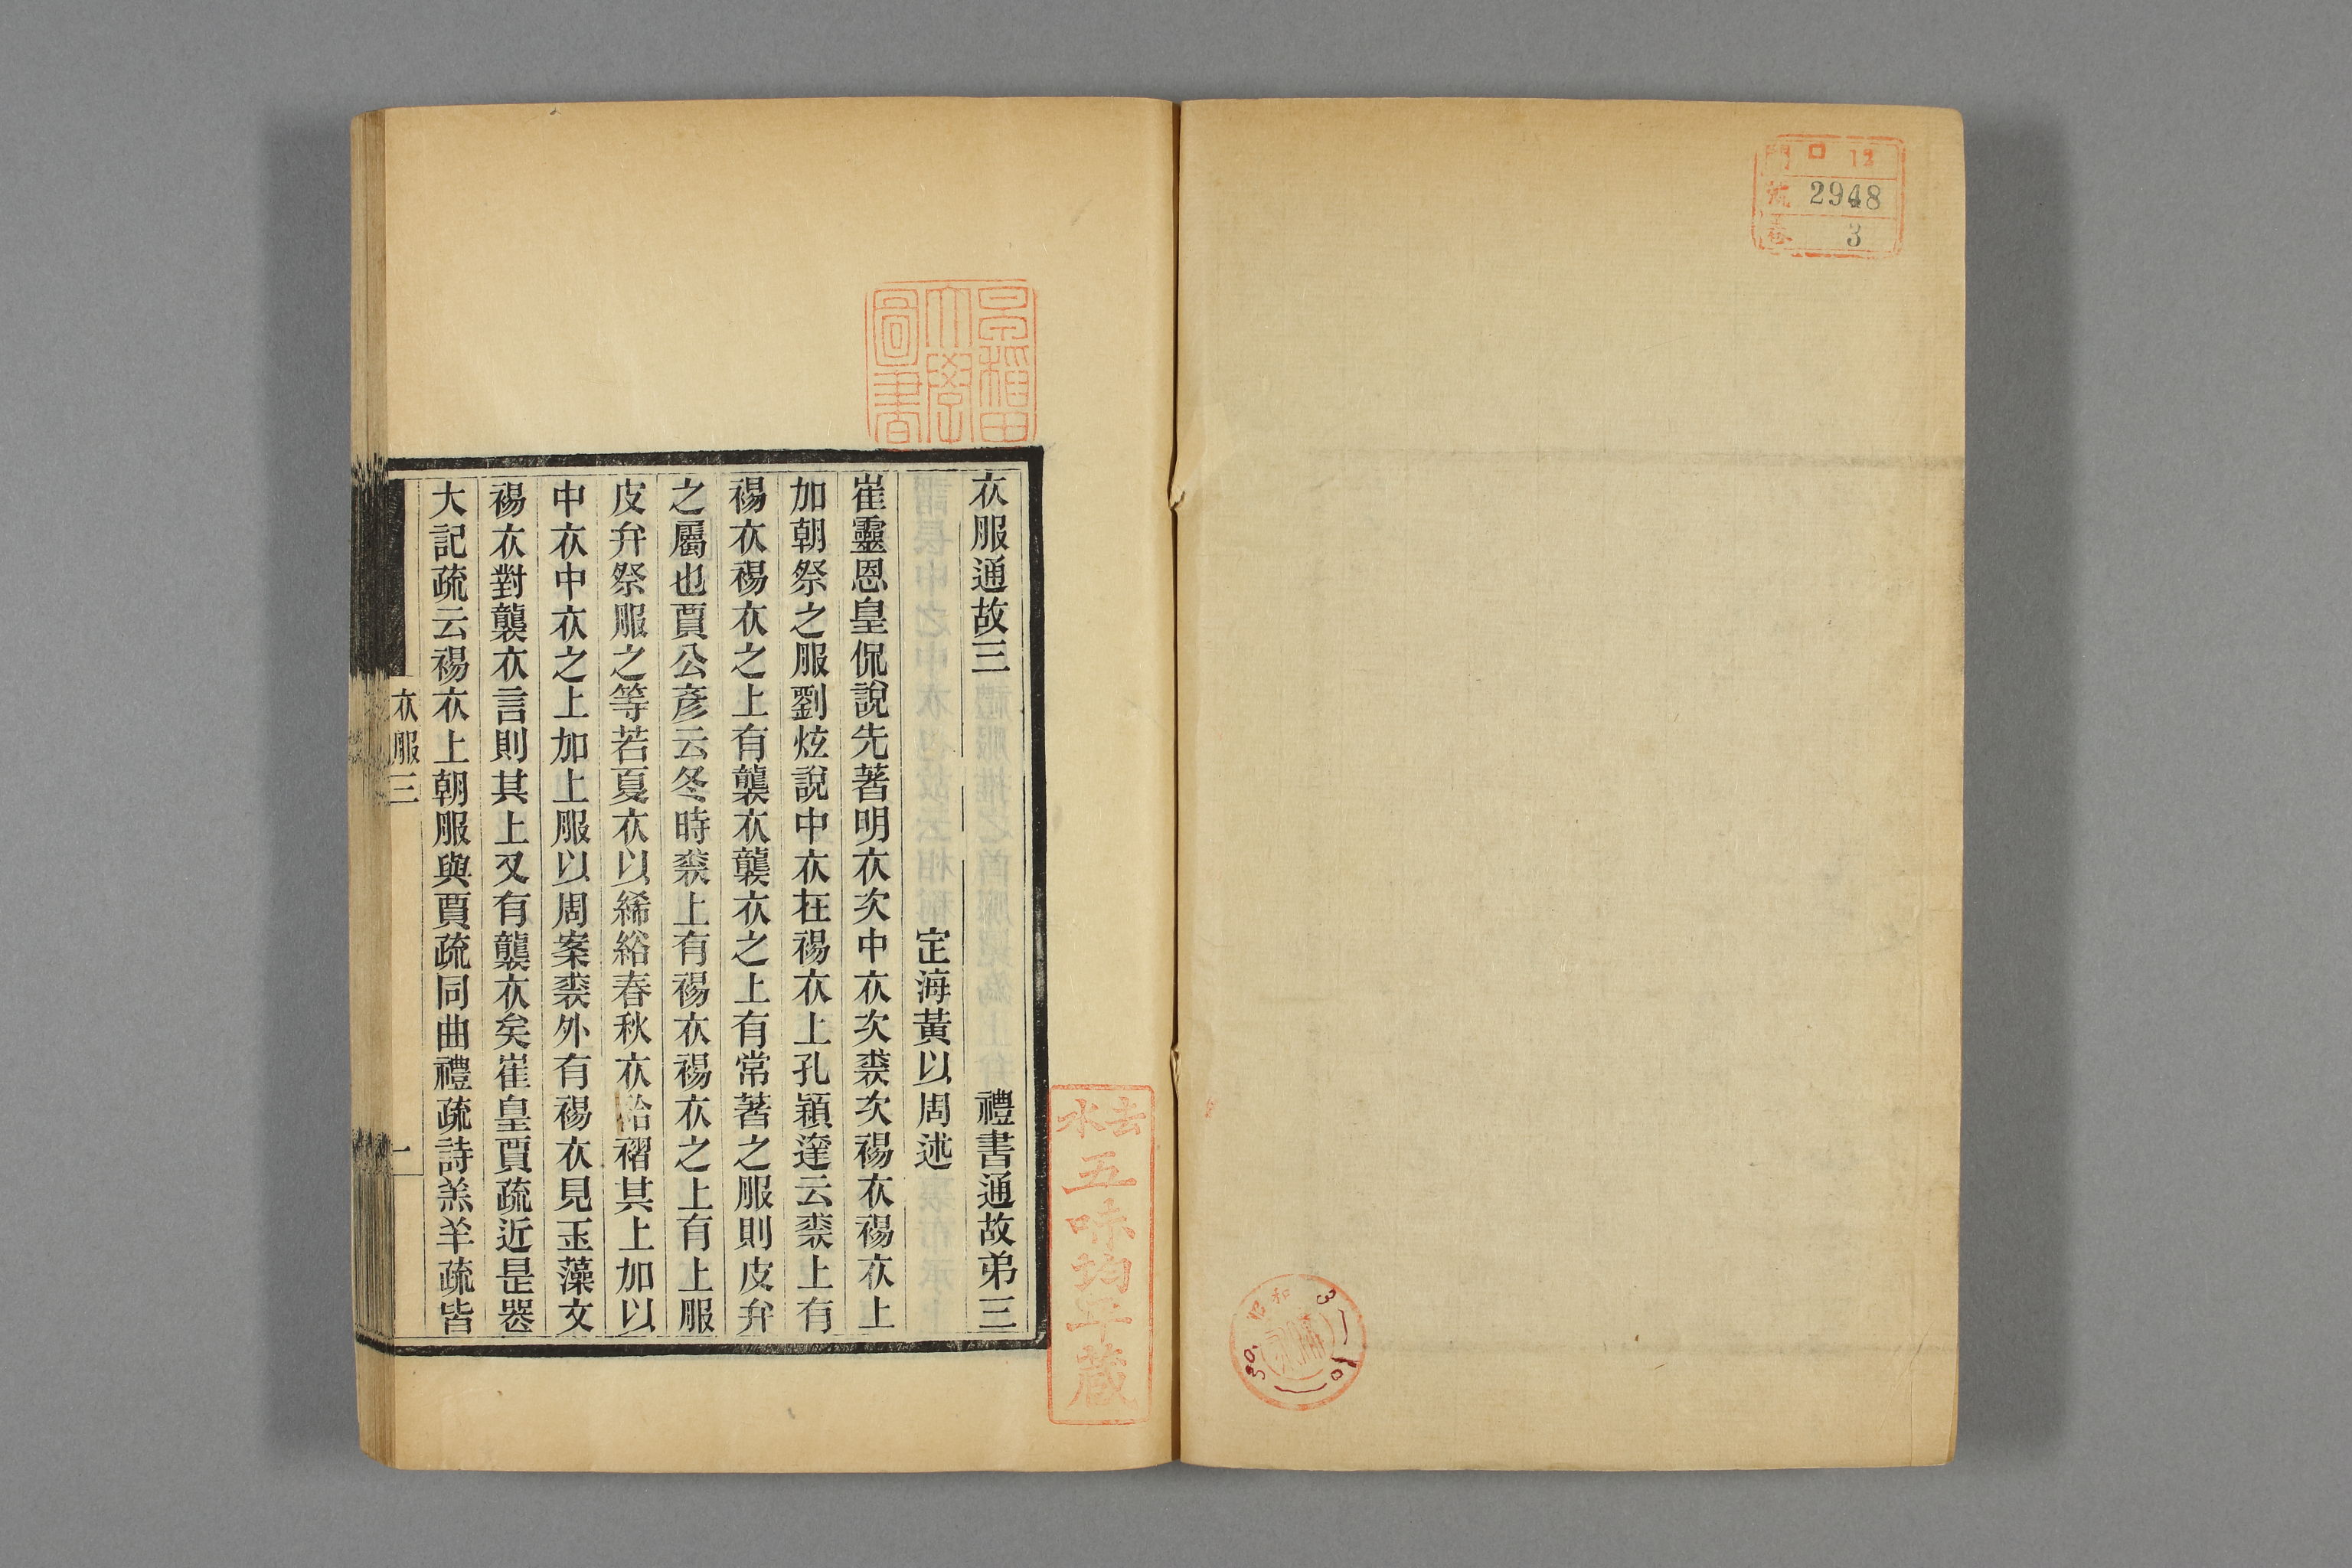 門 口 12
號 2948
卷 3
昭和
30.
3
10
早稻田
大學
圖書
衣服通故三 禮書通故弟三
定海黃以周述
崔靈恩皇侃說先著明衣次中衣次裘次裼衣裼衣上
加朝祭之服劉炫說中衣在裼衣上孔穎達云裘上有
裼衣裼衣之上有襲衣襲衣之上有常著之服則皮弁
之屬也賈公彥云冬時裘上有裼衣裼衣之上有上服
皮弁祭服之等若夏衣以絺綌春秋衣袷褶其上加以
中衣中衣之上加上服以周案裘外有裼衣見玉藻文
裼衣對襲衣言則其上又有襲衣矣崔皇賈疏近是喪
大記疏云裼衣上朝服與賈疏同曲禮疏詩羔羊疏皆
衣服三
一
去水
五味均平蔵